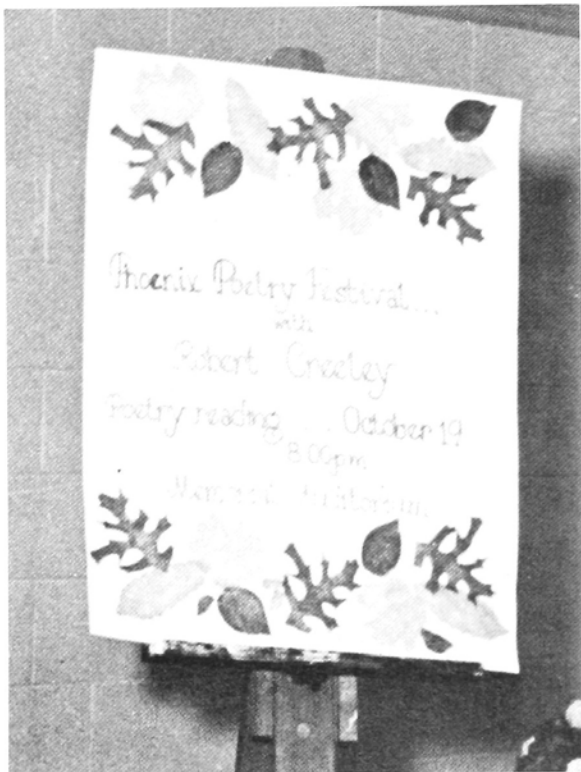 Phoenix Poetry Festival...
with
Robert Creeley
Poetry reading ... October 19
8:00pm
Memorial Auditorium